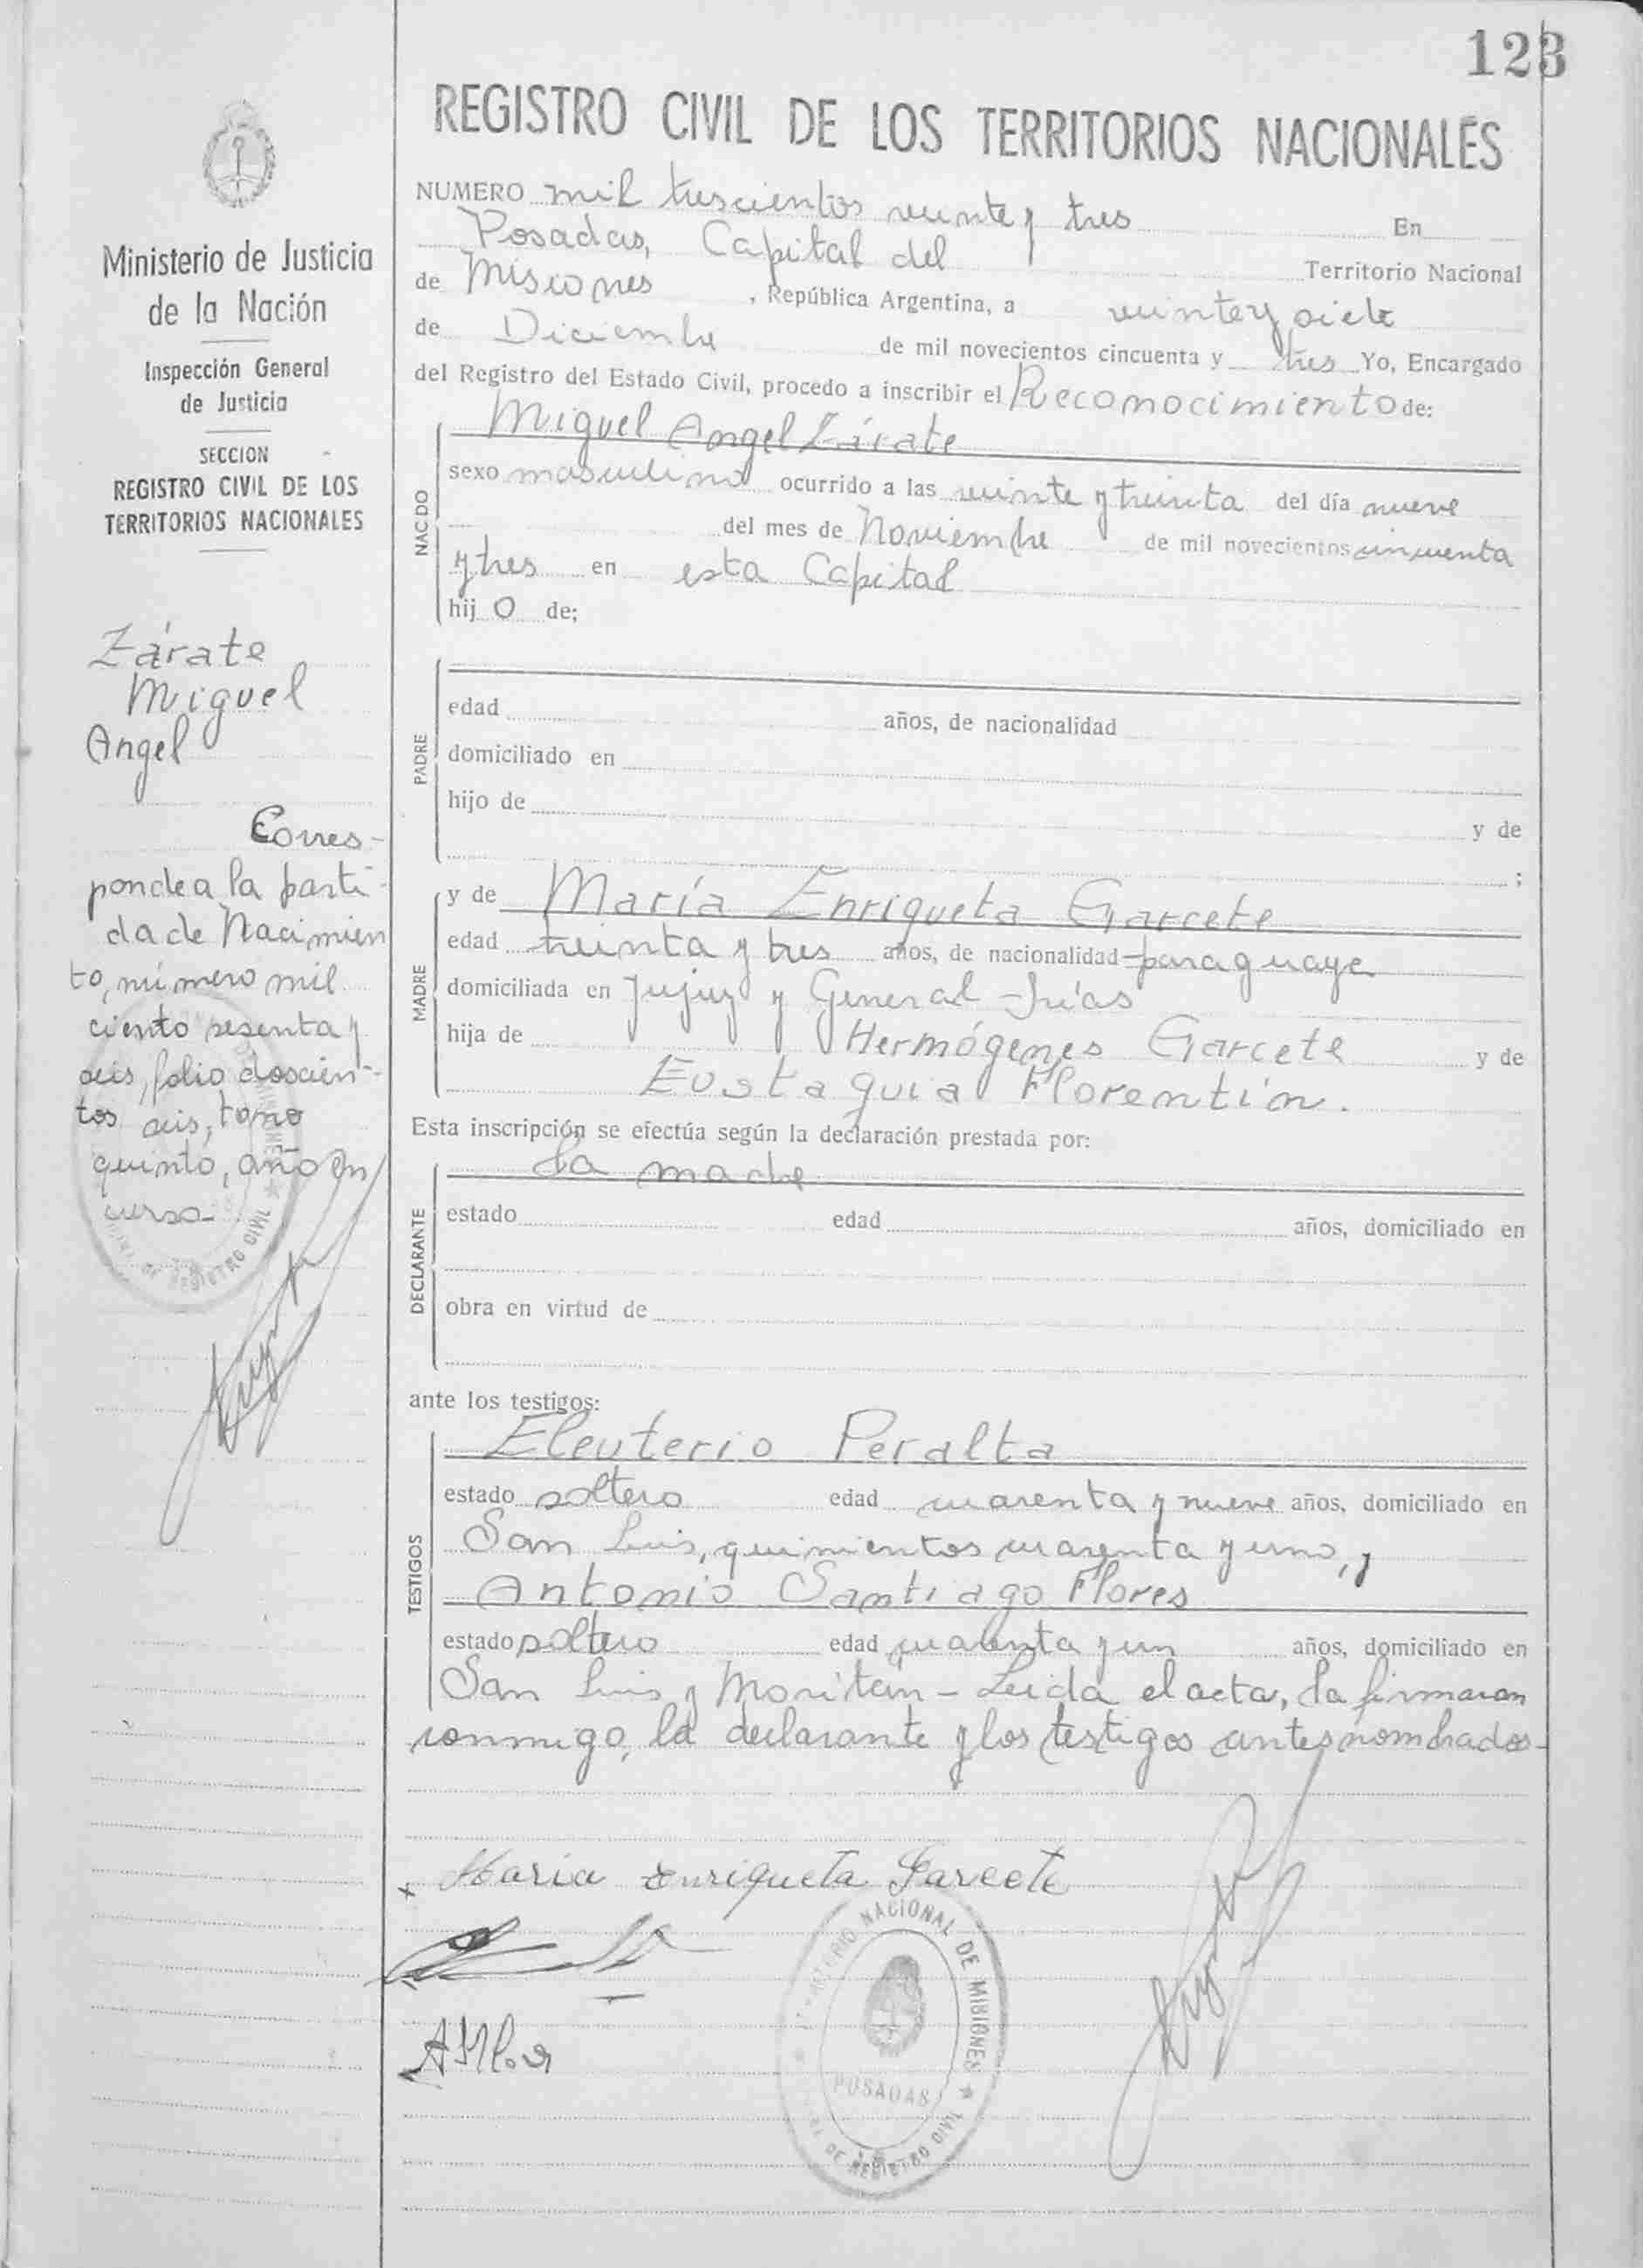 123
REGISTRO CIVIL DE LOS TERRITORIOS NACIONALES
Ministerio de Justicia
de la Nación
Inspección General
de Justicia
SECCION
REGISTRO CIVIL DE LOS
TERRITORIOS NACIONALES
Zárate
Miguel
Angel
Corres-
ponde a la parti-
da de Nacimien
to, número mil
ciento sesenta y
seis, folio doscien-
tos seis, tomo
quinto, año en
curso-
NUMERO mil trescientos veinte y tres En
Posadas, Capital del Territorio Nacional
de Misiones, República Argentina, a veinte y siete
de Diciembre de mil novecientos cincuenta y tres Yo, Encargado
del Registro del Estado Civil, procedo a inscribir el Reconocimiento de:
NACIDO
Miguel Angel Zárate
sexo masculino ocurrido a las veinte y treinta del día nueve
del mes de Noviembre de mil novecientos cincuenta
y tres en esta Capital
hij o de;
PADRE
edad años, de nacionalidad
domiciliado en
hijo de y de
;
MADRE
y de María Enriqueta Garcete
edad treinta y tres años, de nacionalidad paraguaya
domiciliada en Jujuy y General Frías
hija de Hermógenes Garcete y de
Eustaquia Florentín.
Esta inscripción se efectúa según la declaración prestada por:
DECLARANTE
La madre
estado edad años, domiciliado en
obra en virtud de
ante los testigos:
TESTIGOS
Eleuterio Peralta
estado soltero edad cuarenta y nueve años, domiciliado en
San Luis, quinientos cuarenta y uno, y
Antonio Santiago Flores
estado soltero edad cuarenta y un años, domiciliado en
San Luis y Moritán - Leída el acta, la firmaron
conmigo, la declarante y los testigos antes nombrados-
x Maria Enriqueta Garcete
TERRITORIO NACIONAL DE MISIONES
POSADAS
DE REGISTRO CIVIL